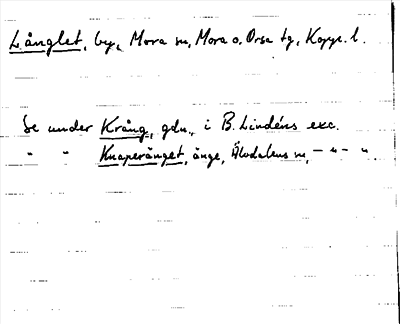 Långlet, by, Mora sn, Mora o. Orsa tg, Kopp. l.
Se under Krång, gdn., i B. Lindéns exc.
" " Knaperänget, änge, Älvdalens sn, – " – "